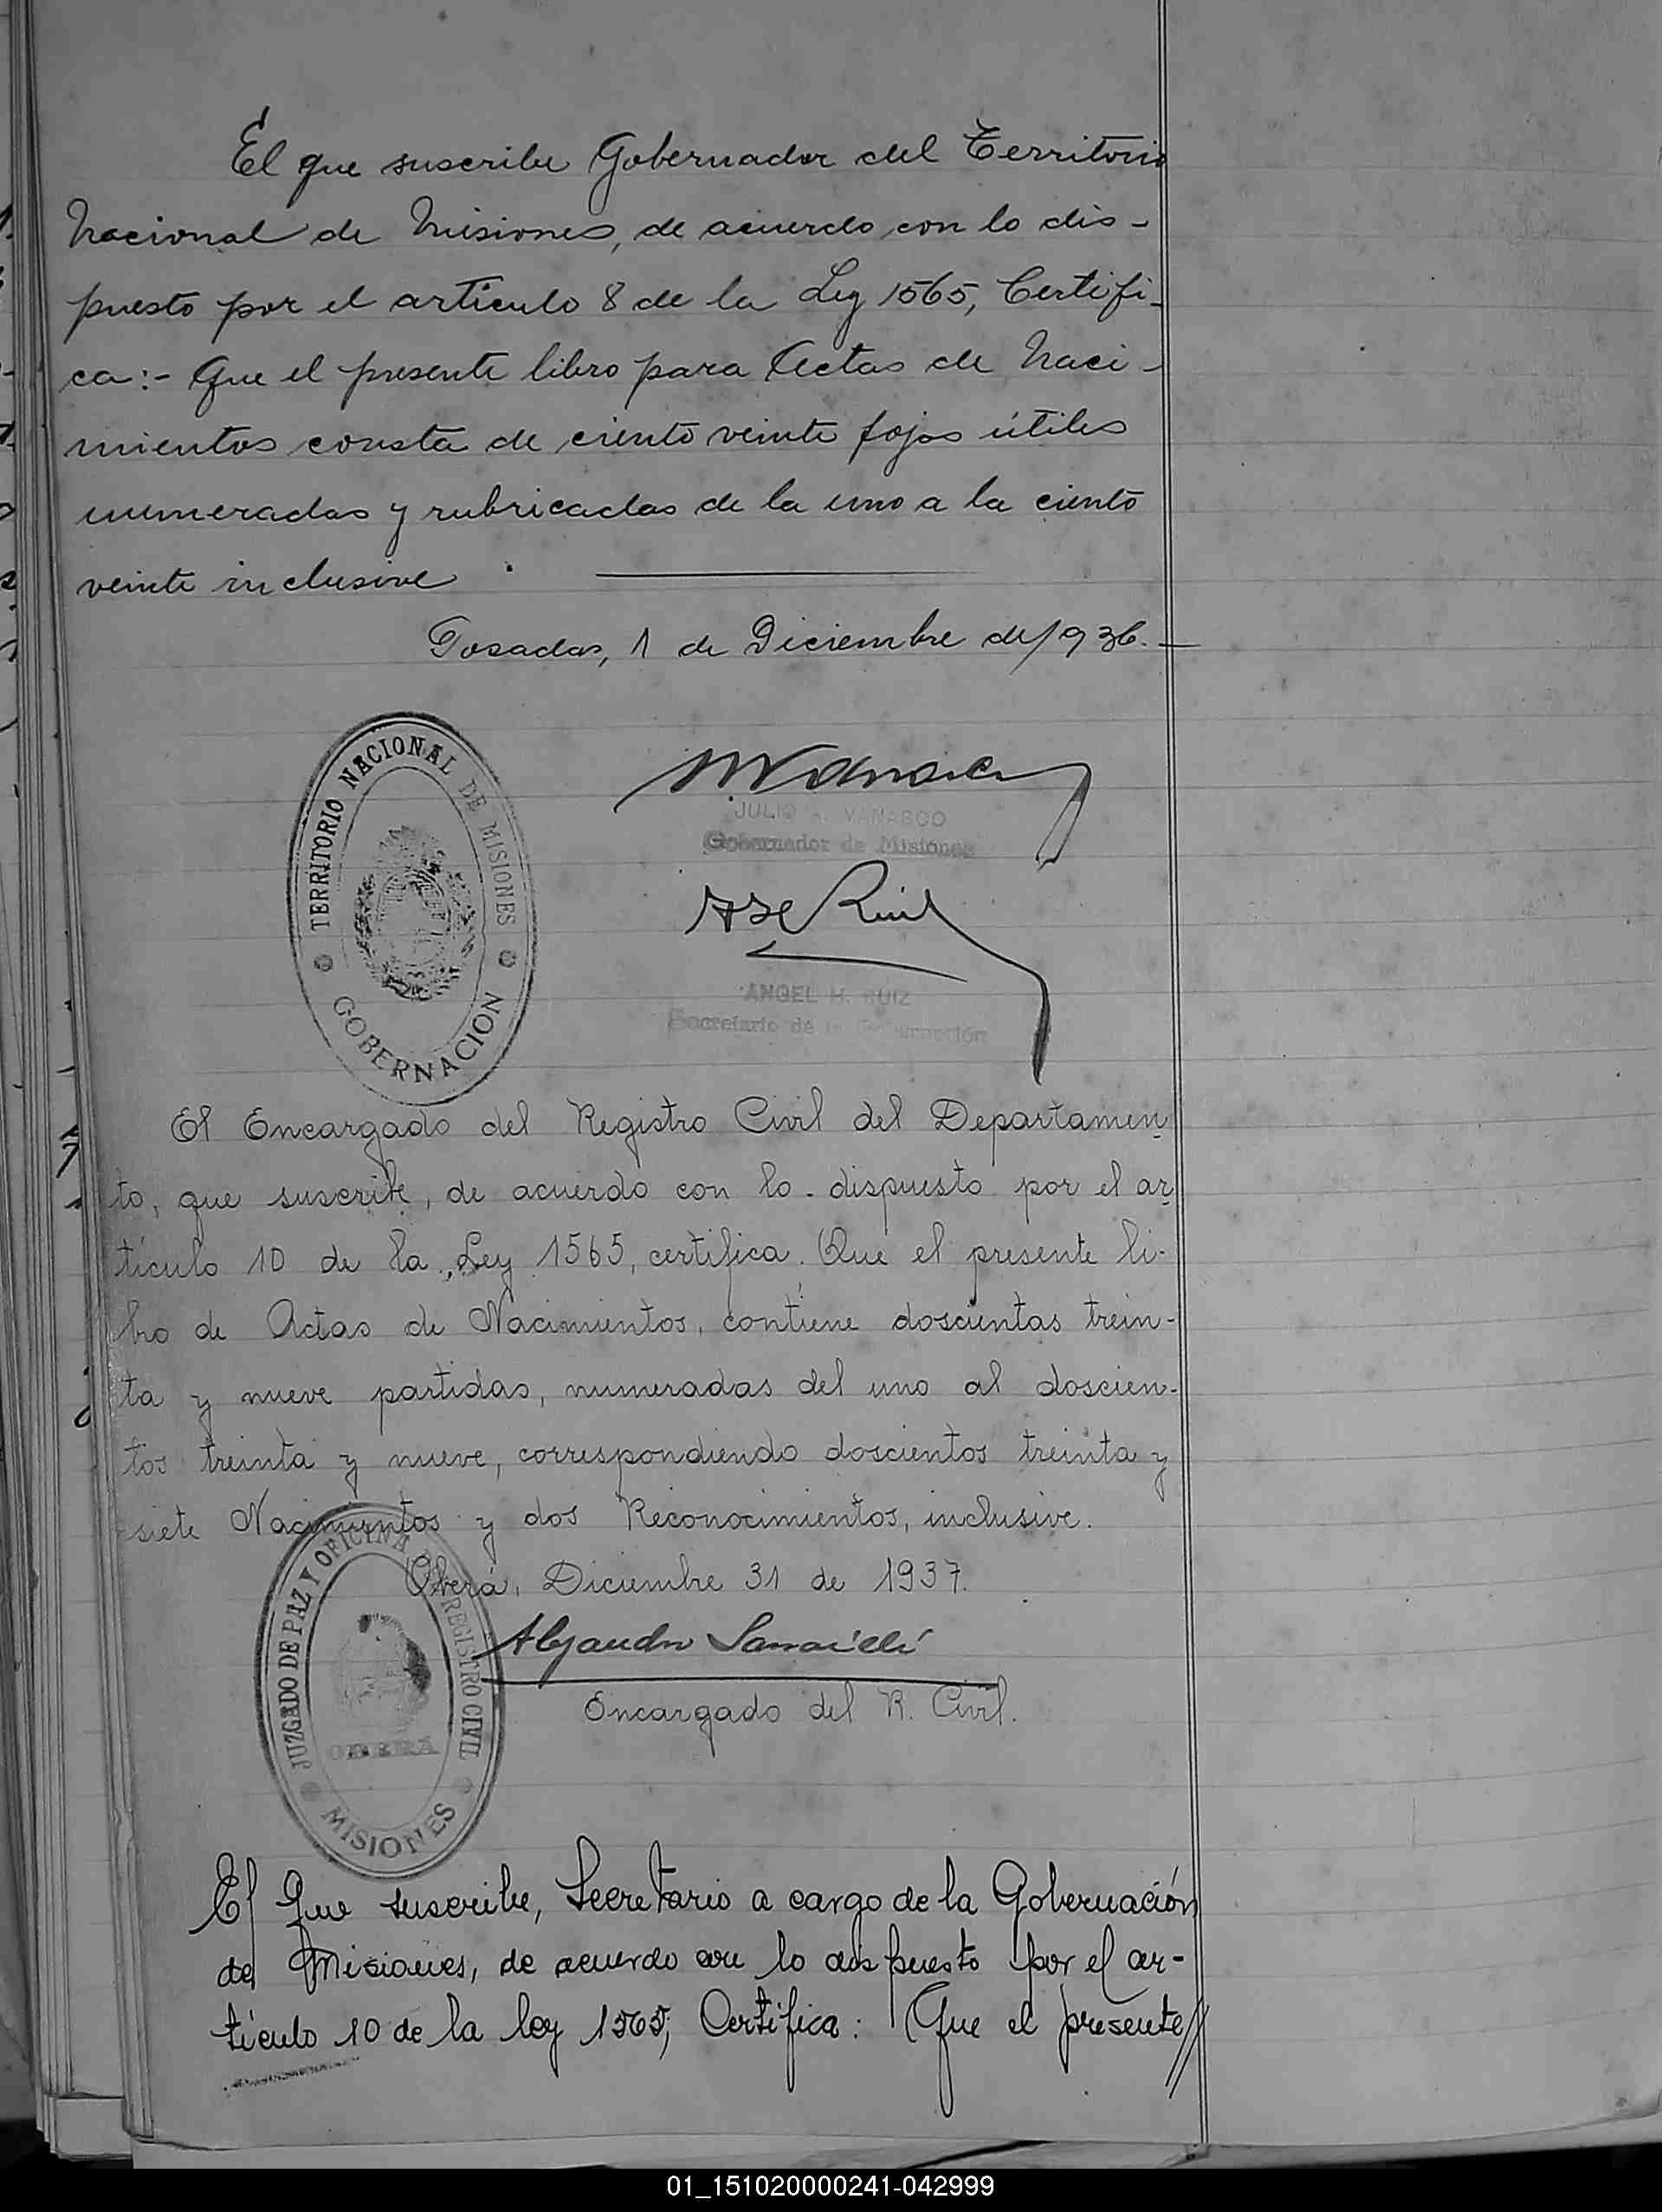 El que suscribe Gobernador del Territorio
Nacional de Misiones, de acuerdo con lo dis-
puesto por el artículo 8 de la Ley 1565, Certifi-
ca:- Que el presente libro para Actas de Naci-
mientos consta de ciento veinte fojas útiles
numeradas y rubricadas de la uno a la ciento
veinte inclusive.
Posadas, 1 de Diciembre de 1936.-
TERRITORIO NACIONAL DE MISIONES
GOBERNACION
JULIO VANASCO
Gobernador de Misiones
Ruiz
ANGEL H. RUIZ
Secretario de la Gobernación
El Encargado del Registro Civil del Departamen-
to, que suscribe, de acuerdo con lo dispuesto por el ar-
tículo 10 de la Ley 1565, certifica. Que el presente li-
bro de Actas de Nacimientos, contiene doscientas trein-
ta y nueve partidas, numeradas del uno al doscien-
tos treinta y nueve, correspondiendo doscientos treinta y
siete Nacimientos y dos Reconocimientos, inclusive.
Oberá, Diciembre 31 de 1937.
Alejandro
Encargado del R. Civil.
JUZGADO DE PAZ Y OFICINA DE REGISTRO CIVIL
OBERÁ
MISIONES
El que suscribe, Secretario a cargo de la Gobernación
de Misiones, de acuerdo con lo dispuesto por el ar-
tículo 10 de la ley 1565, Certifica: Que el presente//
01_151020000241-042999